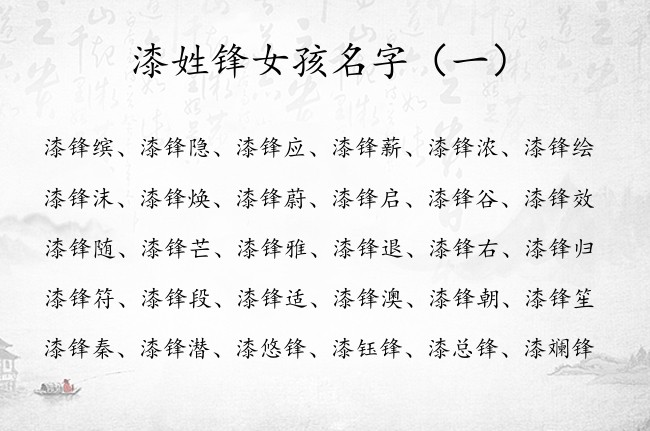 漆姓锋女孩名字（一）
漆锋缤、漆锋隐、漆锋应、漆锋薪、漆锋浓、漆锋绘
漆锋沫、漆锋焕、漆锋蔚、漆锋启、漆锋谷、漆锋效
漆锋随、漆锋芒、漆锋雅、漆锋退、漆锋右、漆锋归
漆锋符、漆锋段、漆锋适、漆锋澳、漆锋朝、漆锋笙
漆锋秦、漆锋潜、漆悠锋、漆钰锋、漆总锋、漆斓锋